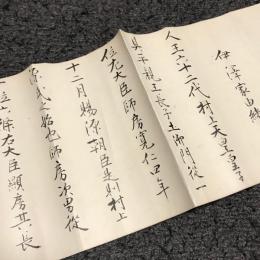 伊澤家由緒
人王六十二代村上天皇皇子
具平親王長子土御門従一
位右大臣師房寛仁四年
十二月賜源朝臣是則村上
源氏之始也師房次男従
一位六条右大臣顕房其六長